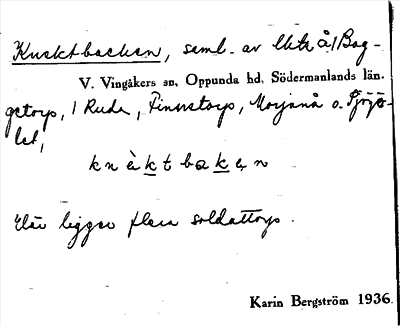 Knektbacken, saml. av lht å 1 Bag-
V. Vingåkers sn, Oppunda hd, Södermanlands län.
getorp, 1 Ruda, Finnstorp, Morjanä o. Sjöjö-
let,
k n è k t b a k e n
Här ligger flera soldattorp.
Karin Bergström 1936.